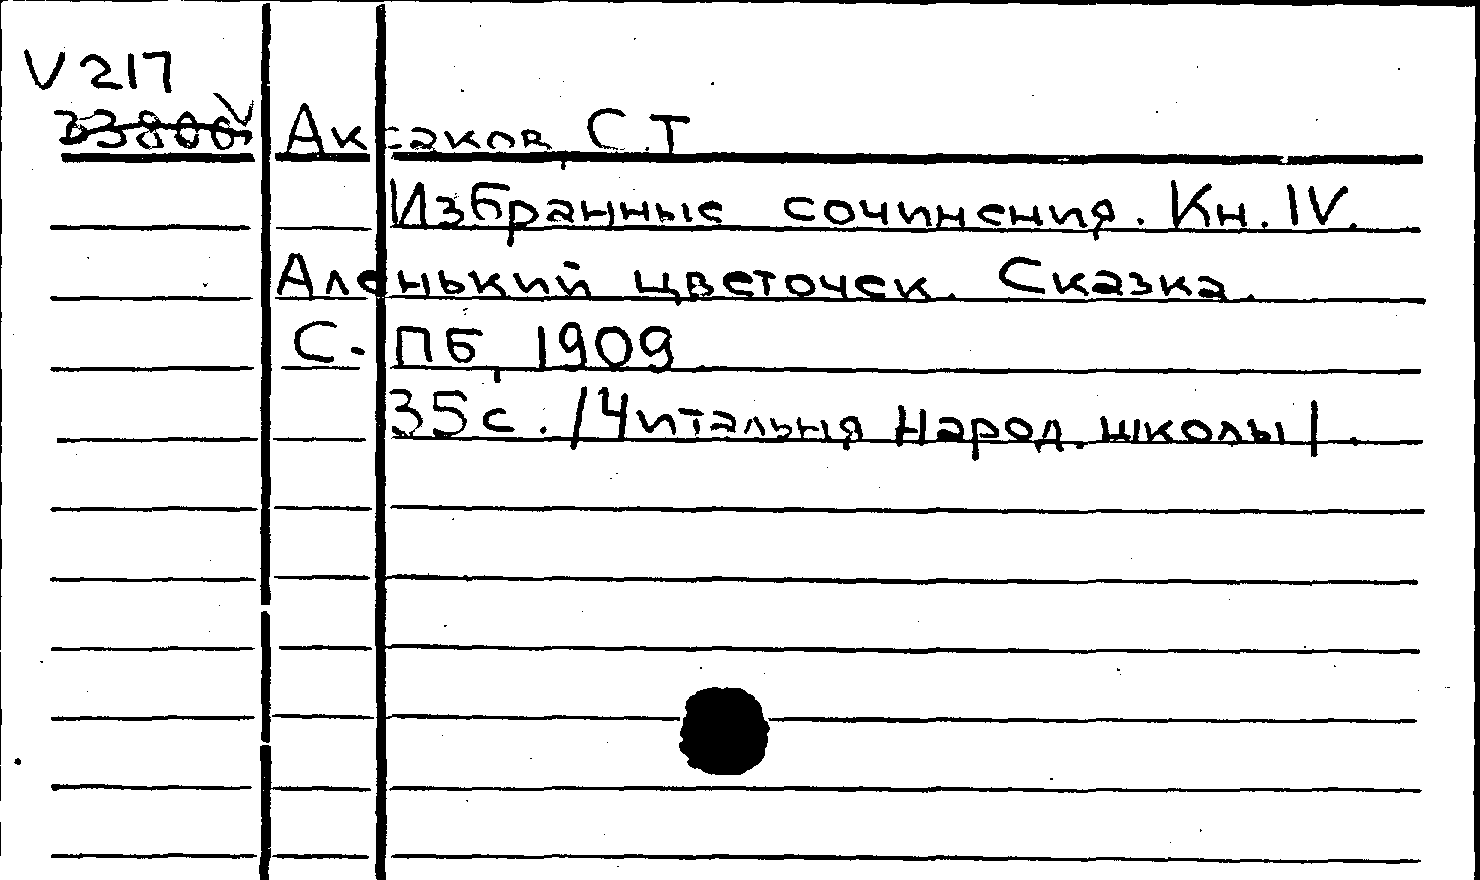 V 217
Аксаков, С.Т
Избранные сочинения. Кн. IV.
Аленький цветочек. Сказка.
С-ПБ, 1909
35 с. /Читальня Народ. школы/.